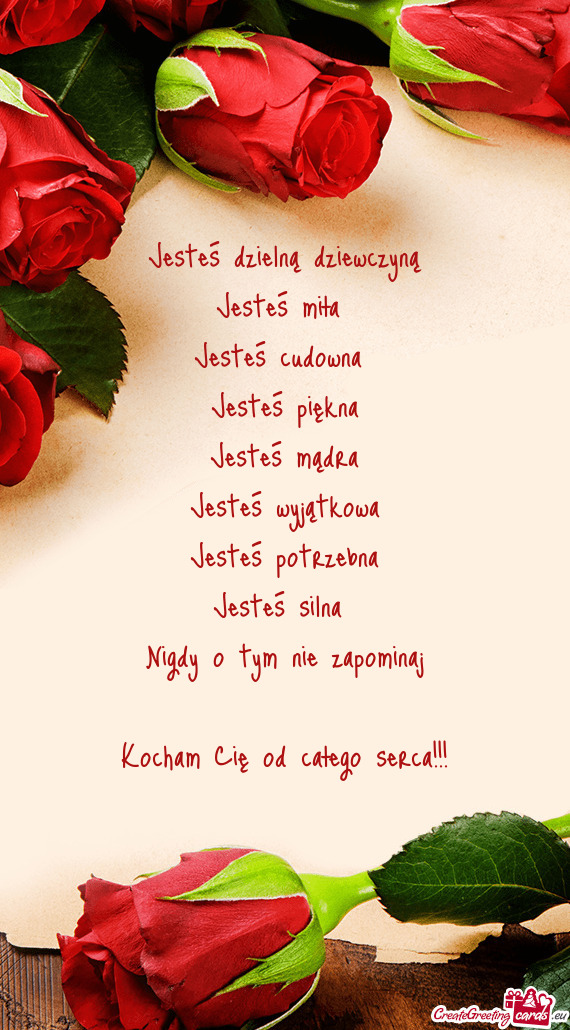 Jesteś dzielną dziewczyną
Jesteś miła
Jesteś cudowna
Jesteś piękna
Jesteś mądra
Jesteś wyjątkowa
Jesteś potrzebna
Jesteś silna
Nigdy o tym nie zapominaj
Kocham Cię od całego serca!!!
CreateGreetingcards.eu